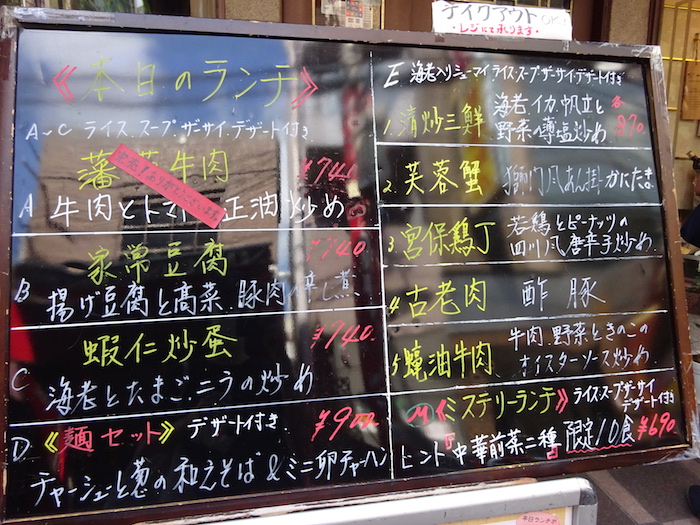 テイクアウトOK!
・レジにて承ります・
《本日のランチ》
A~C ライス.スープ.ザーサイ.デザート付き
蕃茄牛肉 ¥740
A 牛肉とトマト 正油炒め
家常豆腐 ¥740
B 揚げ豆腐と高菜.豚肉 辛し煮
蝦仁炒蛋 ¥740
C 海老とたまご.ニラの炒め
D 《麺セット》 デザート付き ¥900
チャーシューと葱の和えそば&ミニ卵チャーハン
E 海老入りシューマイ ライス.スープ.ザーサイ.デザート付き
1.清炒三鮮 海老.イカ.帆立と野菜の薄塩炒め 各870
2.芙蓉蟹 獅門風あん掛かにたま
3 宮保鶏丁 若鶏とピーナッツの四川風唐辛子炒め
4 古老肉 酢豚
5 蠔油牛肉 牛肉.野菜ときのこのオイスターソース炒め
M 《ミステリーランチ》 ライス.スープ.ザーサイ デザート付き
ヒント『中華前菜二種』限定10食 ¥690